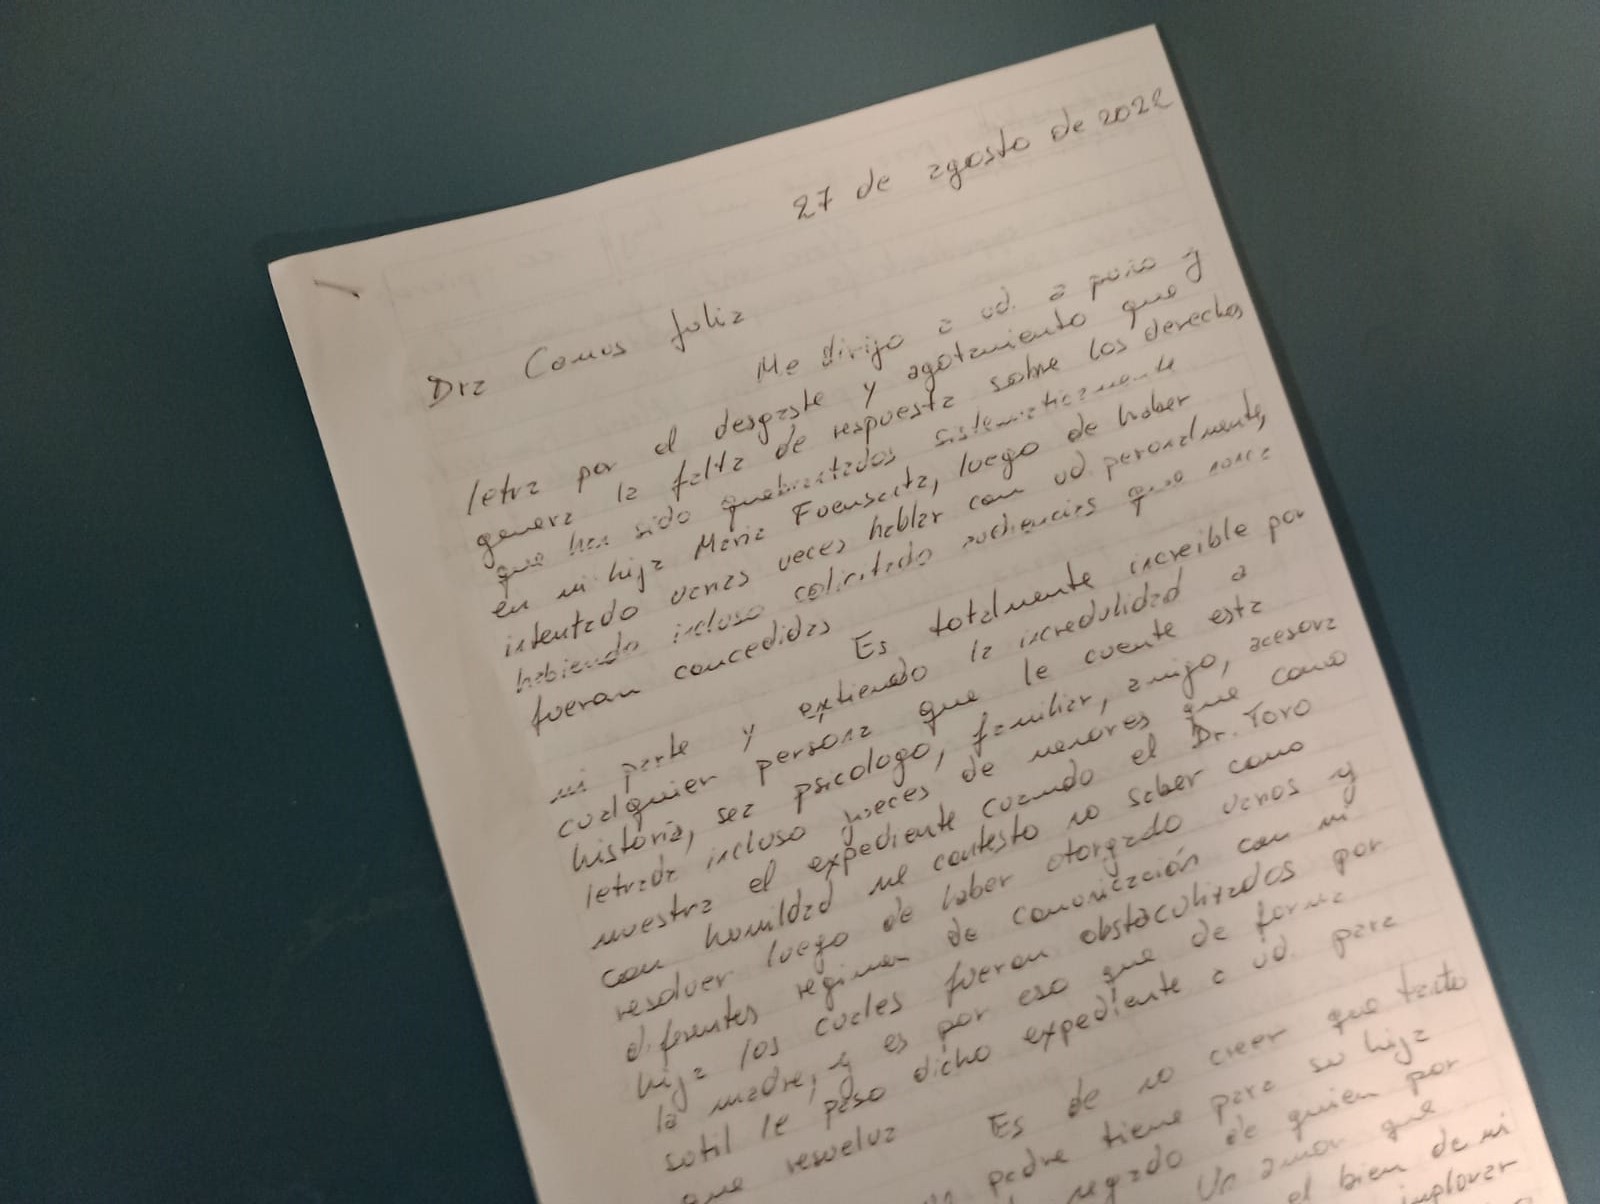 27 de agosto de 2022
Dra Camus Julia
Me dirijo a ud. a puño y
letra por el desgaste y agotamiento que
genera la falta de respuesta sobre los derechos
que han sido quebrantados sistematicamente
en mi hija Maria Fuensanta, luego de haber
intentado varias veces hablar con ud peronalmente,
habiendo incluso solicitado audiencias que nunca
fueran concedidas
Es totalmente increible por
mi parte y extiendo la incredulidad a
cualquier persona que le cuente esta
historia, sea psicologo, familiar, amigo, acesora
letrada incluso jueces de menores que como
muestra el expediente cuando el Dr. Toro
con humildad me contesto no saber como
resolver luego de haber otorgado varios y
diferentes regimen de comunicación con mi
hija los cuales fueron obstaculizados por
la madre, y es por eso que de forma
sutil le paso dicho expediente a ud. para
que resuelva
Es de no creer que tanto
padre tiene para su hija
negado de quien por
Un amor que
el bien de mi
implorar